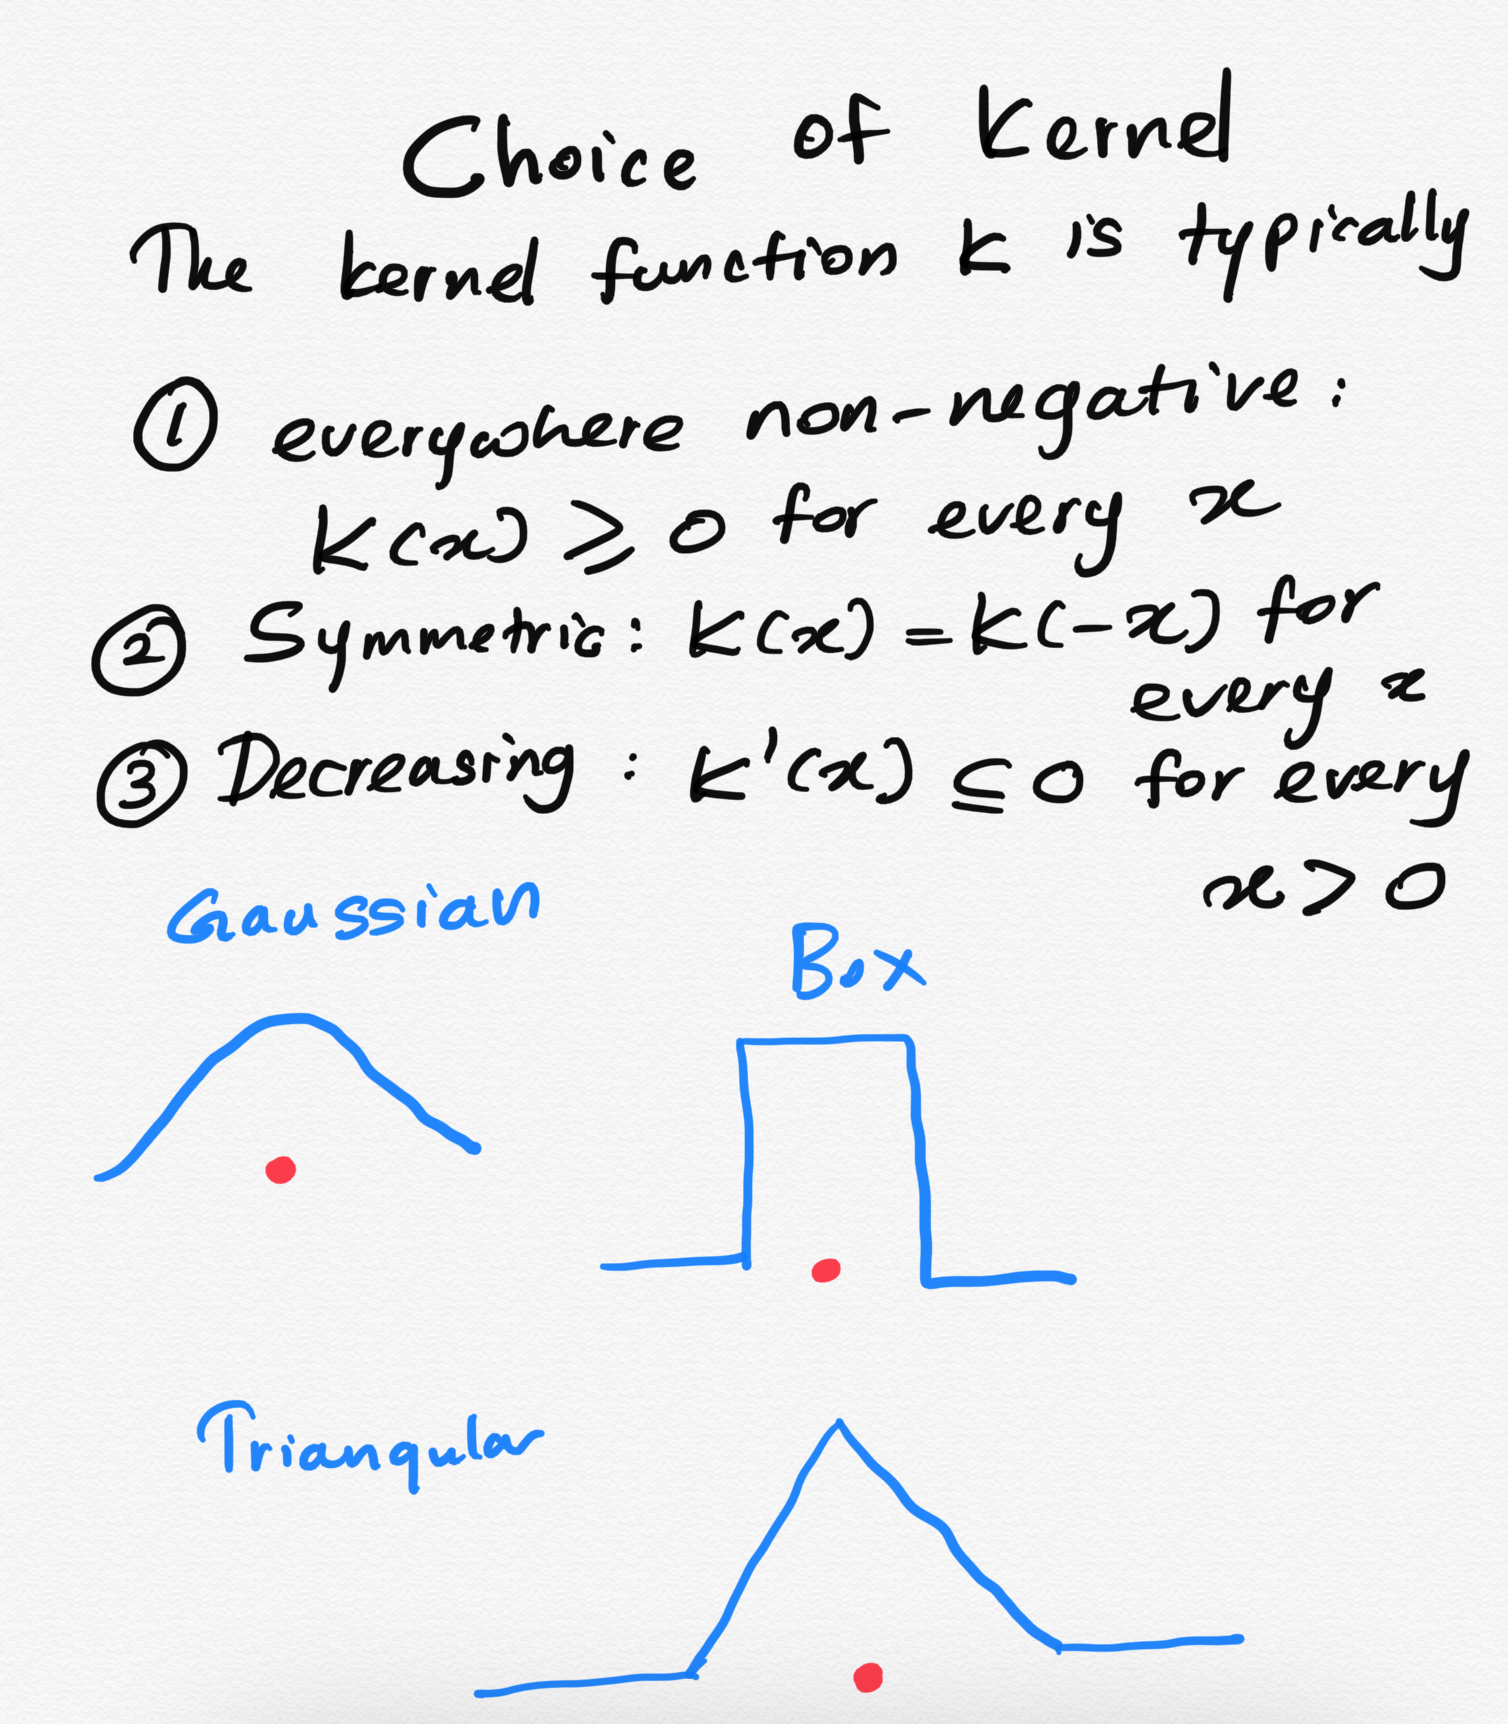 Choice of Kernel
The kernel function K is typically
① everywhere non-negative:
K(x) ≥ 0 for every x
② Symmetric: K(x) = K(-x) for
every x
③ Decreasing: K'(x) ≤ 0 for every
x > 0
Gaussian
Box
Triangular